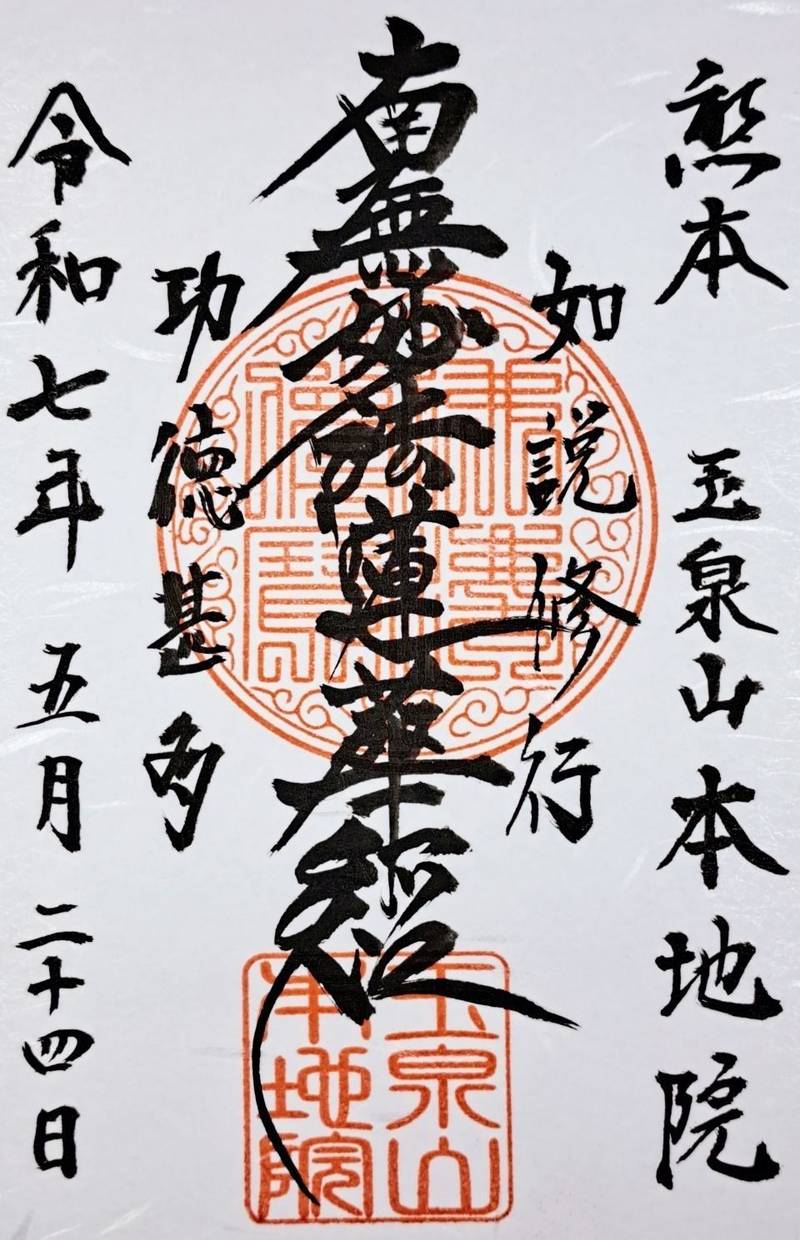 熊本 玉泉山本地院
如説修行
南無妙法蓮華経
功徳甚多
令和七年 五月 二十四日
玉泉山
本地院